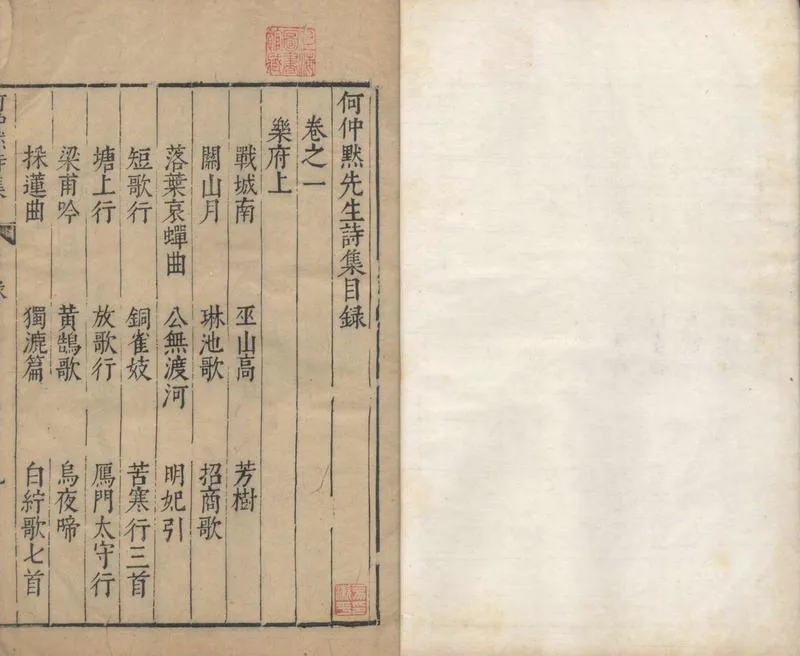 何仲默先生詩集目録
卷之一
樂府上
戰城南 巫山高 芳樹
關山月 琳池歌 招商歌
落葉哀蟬曲 公無渡河 明妃引
短歌行 銅雀妓 苦寒行三首
塘上行 放歌行 鴈門太守行
梁甫吟 黄鵠歌 烏夜啼
採蓮曲 獨漉篇 白紵歌七首